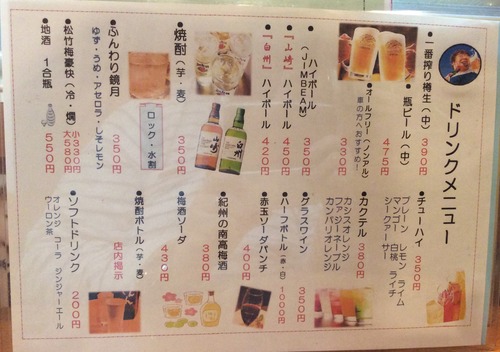 ドリンクメニュー
●一番搾り樽生（中）
390円
●瓶ビール（中）
475円
●オールフリー（ノンアル）
車の方へおすすめ！
350円
●ハイボール
（JIMBEAM）
350円
●『山崎』ハイボール
450円
●『白州』ハイボール
420円
●焼酎（芋・麦）
350円
ロック・水割
●ふんわり鏡月
ゆず・うめ・アセロラ・しそレモン
350円
●松竹梅豪快（冷・燗）
小330円
大580円
●地酒 1合瓶
550円
●チューハイ
350円
プレーン レモン ライム
マンゴー 白桃 ライチ
シークァーサー
●カクテル
380円
カシスオレンジ
ファジーネーブル
カンパリオレンジ
●グラスワイン
350円
●ハーフボトル（赤・白）
1000円
●赤玉ソーダパンチ
400円
●紀州の南高梅酒
380円
●梅酒ソーダ
430円
●焼酎ボトル（芋・麦）
店内掲示
●ソフトドリンク
200円
オレンジ コーラ ジンジャーエール
ウーロン茶
山崎